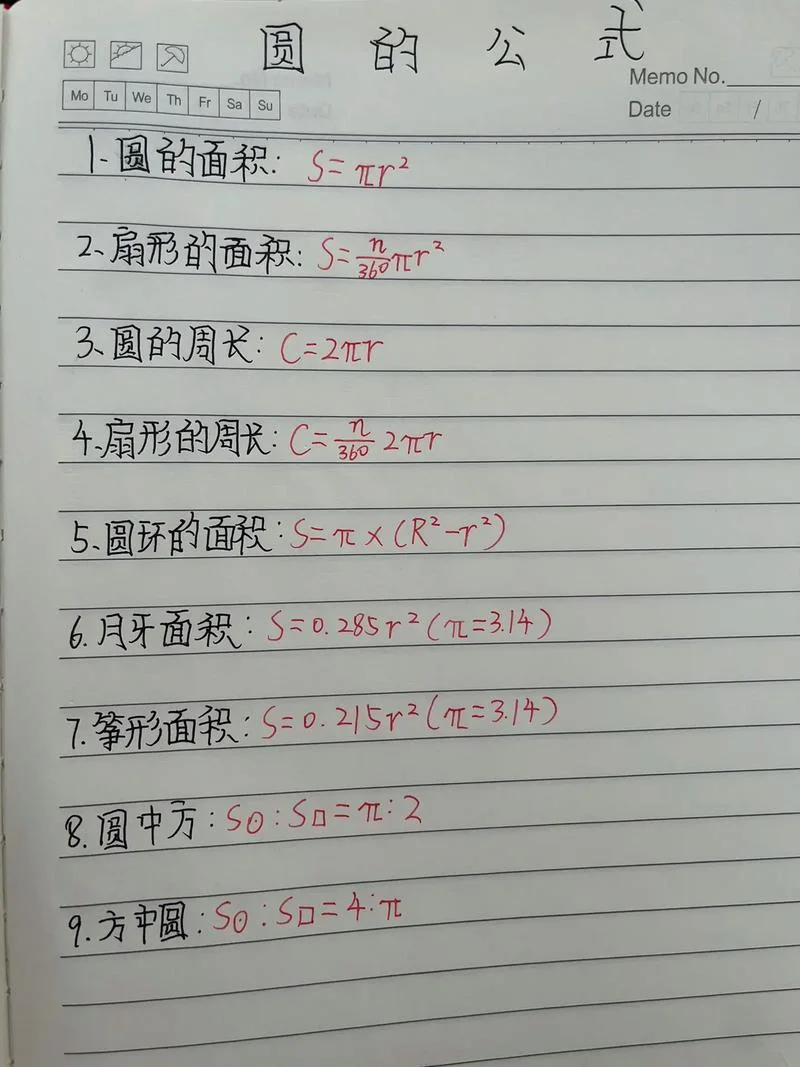 圆的公式
Memo No.
Mo Tu We Th Fr Sa Su
Date /
1.圆的面积: S=πr²
2、扇形的面积: S=n/360πr²
3、圆的周长: C=2πr
4、扇形的周长: C=n/360 2πr
5、圆环的面积: S=π×(R²-r²)
6.月牙面积: S=0.285r²(π=3.14)
7.筝形面积: S=0.215r²(π=3.14)
8.圆中方: S⊙:S□=π:2
9.方中圆: S⊙:S□=4:π